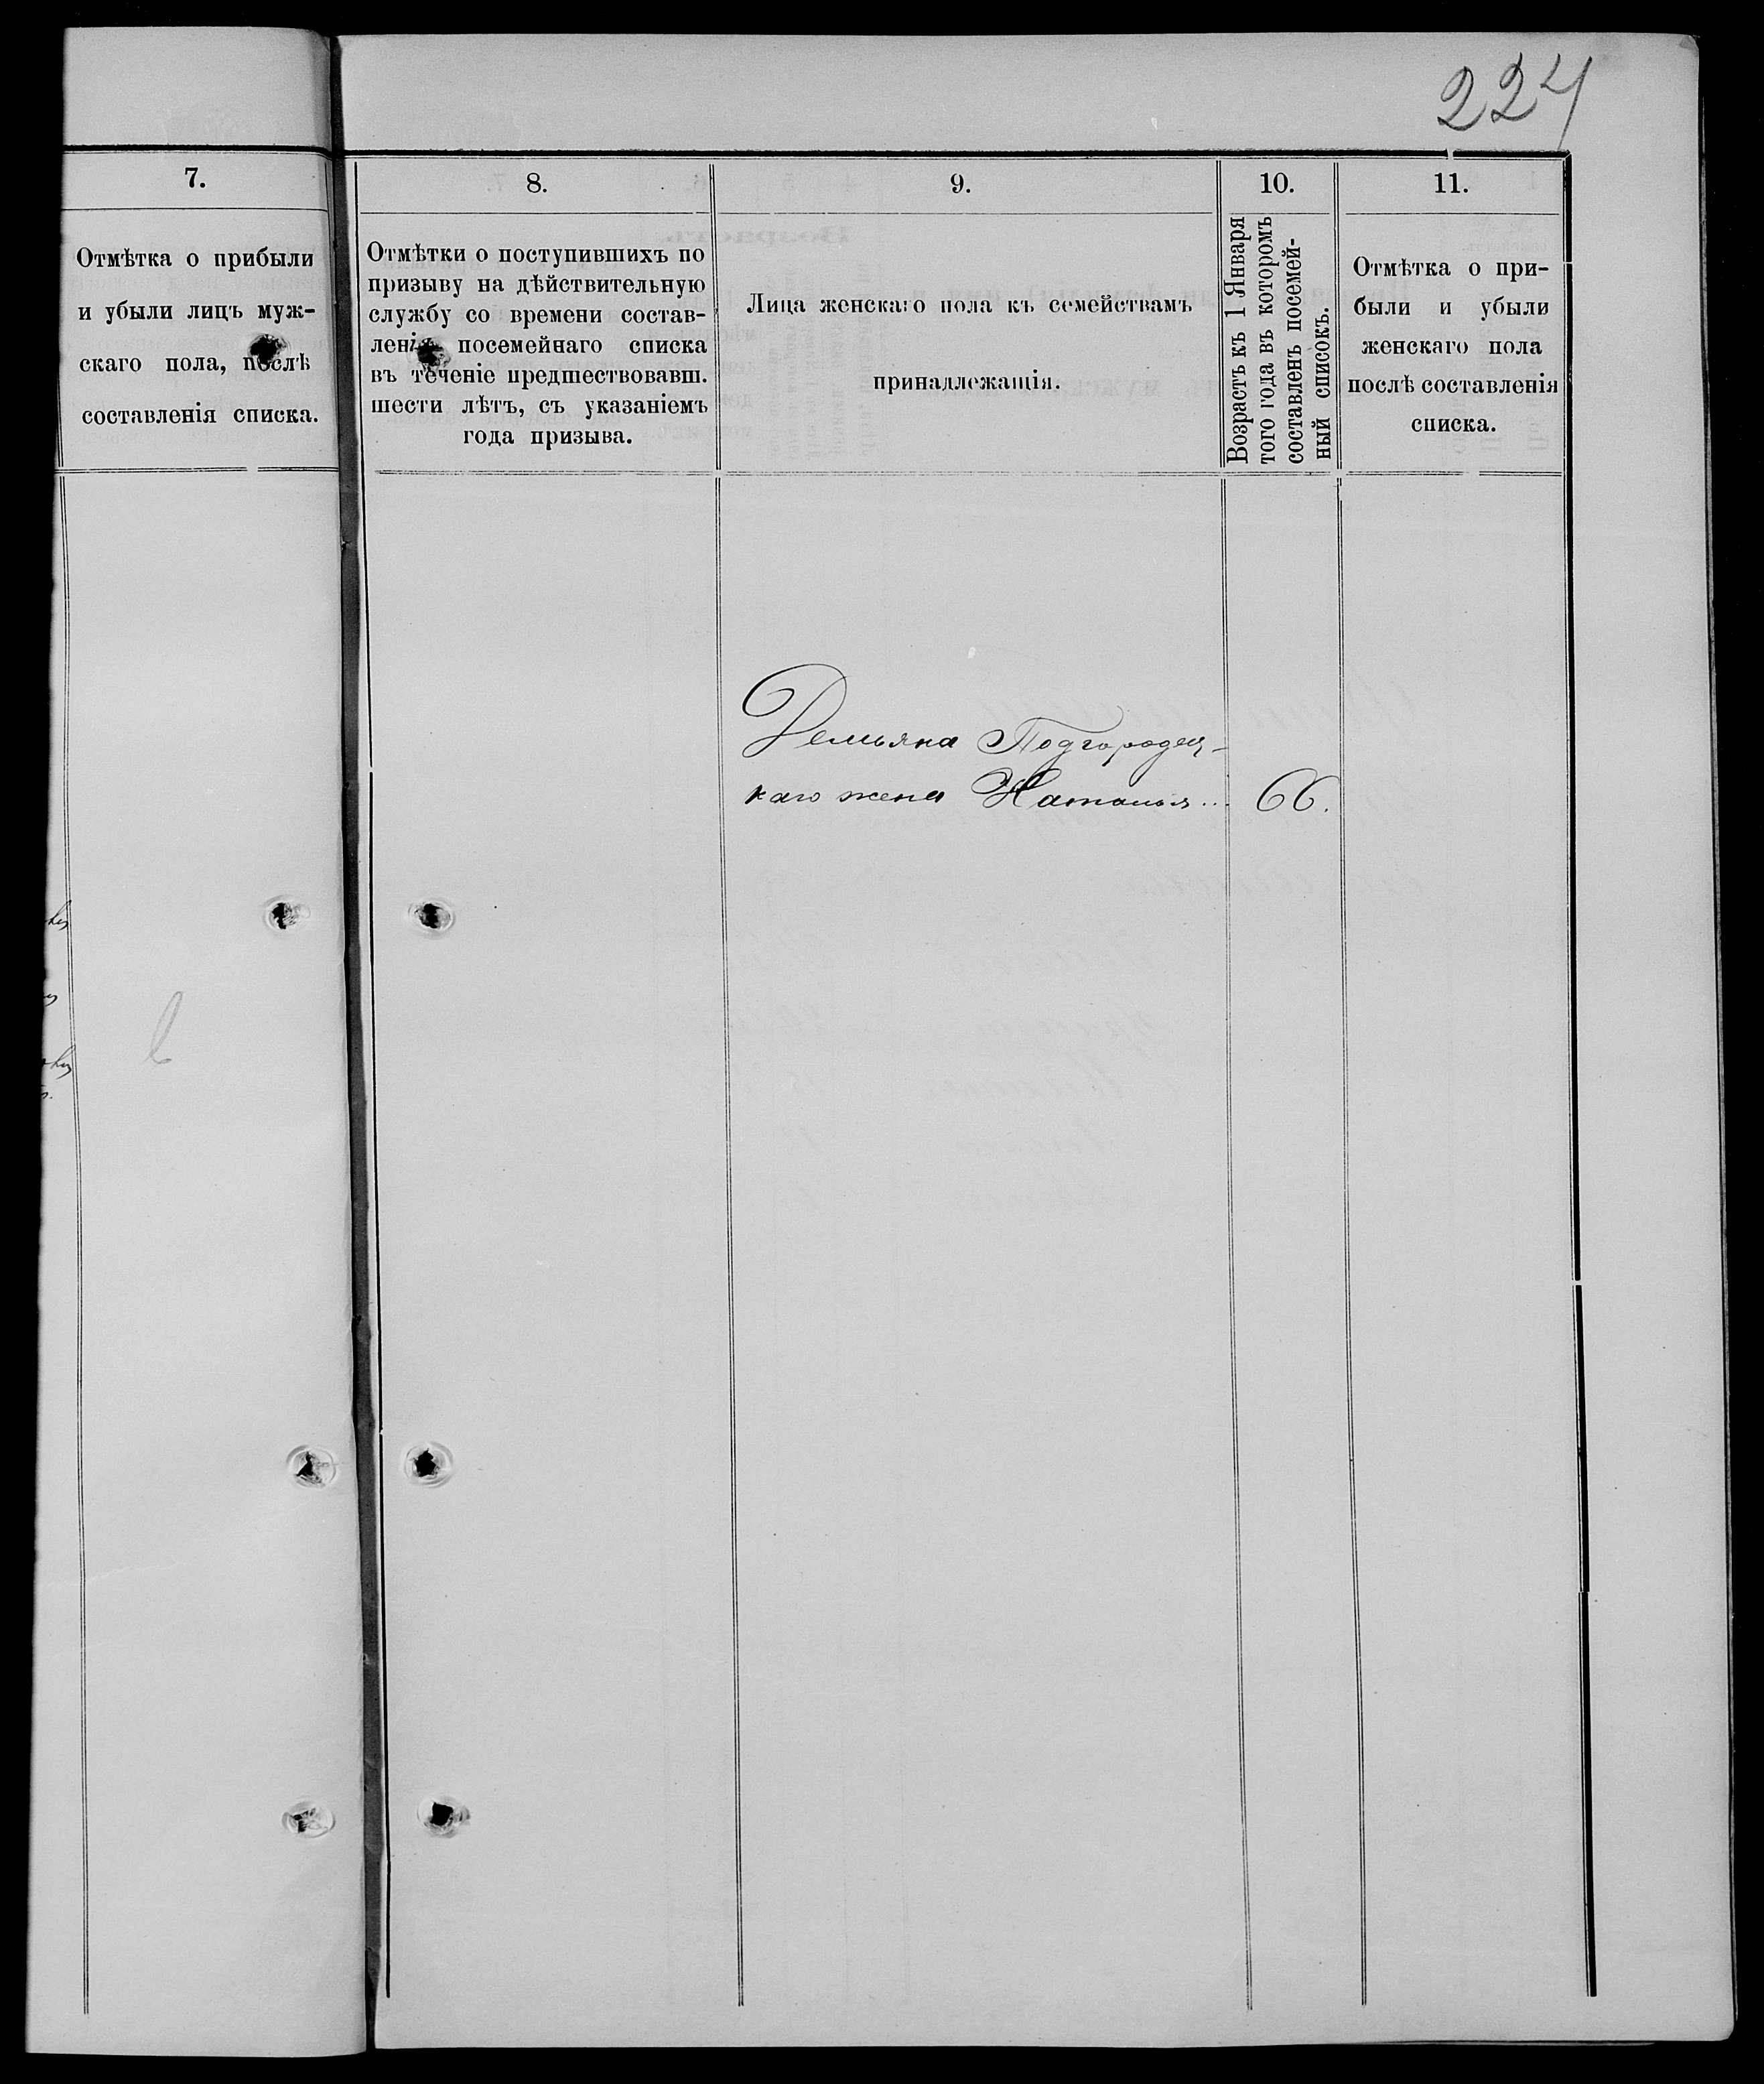 224
7.
Отмѣтка о прибыли
и убыли лицъ муж-
скаго пола, послѣ
составленія списка.
8.
Отмѣтки о поступившихъ по
призыву на дѣйствительную
службу со времени состав-
ленія посемейнаго списка
въ теченіе предшествовавш.
шести лѣтъ, съ указаніемъ
года призыва.
9.
Лица женскаго пола къ семействамъ
принадлежащія.
10.
Возрастъ къ 1 Января
того года въ которомъ
составленъ посемей-
ный списокъ.
11.
Отмѣтка о при-
были и убыли
женскаго пола
послѣ составленія
списка.
Демьяна Подгородец-
каго жена Наталья... 66.